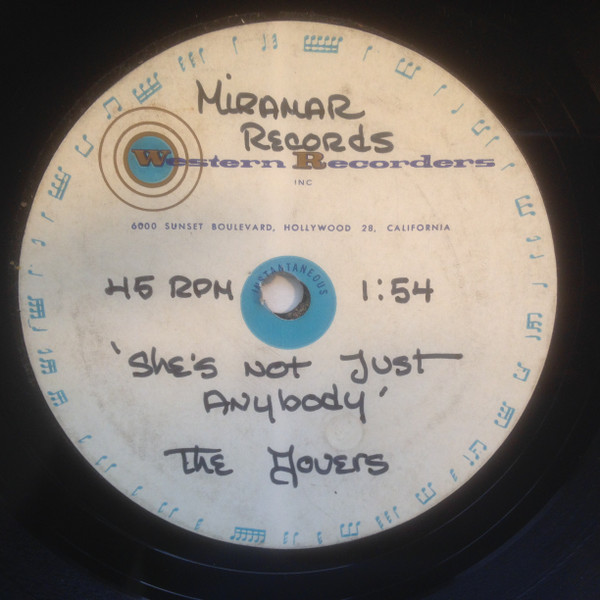 Miramar
Records
Western Recorders
INC
6000 SUNSET BOULEVARD, HOLLYWOOD 28, CALIFORNIA
INSTANTANEOUS
45 RPM 1:54
'She's not Just
Anybody'
The Jovers